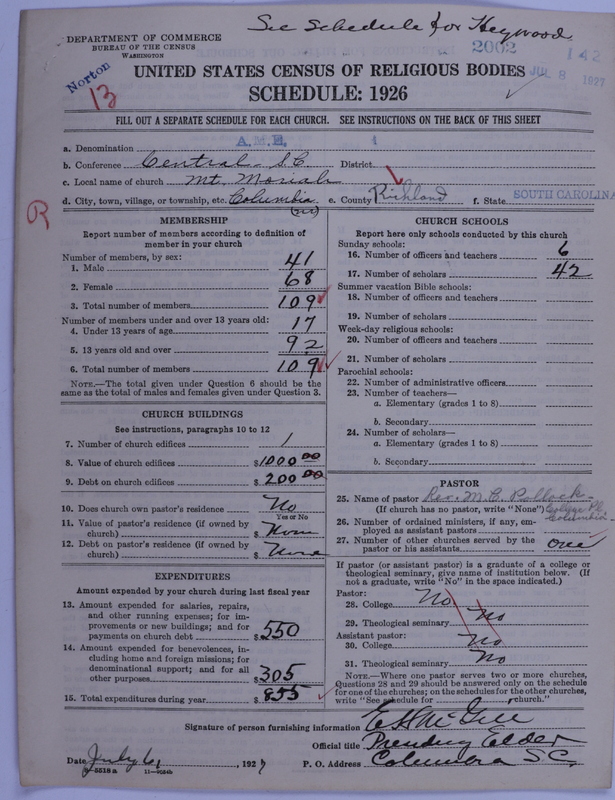 See Schedule for Heywood
DEPARTMENT OF COMMERCE
BUREAU OF THE CENSUS
WASHINGTON
2002
142
JUL 8 1927
Norton
13
UNITED STATES CENSUS OF RELIGIOUS BODIES
SCHEDULE: 1926
FILL OUT A SEPARATE SCHEDULE FOR EACH CHURCH. SEE INSTRUCTIONS ON THE BACK OF THIS SHEET
a. Denomination A.M.E. 1
b. Conference Central S.C. District
c. Local name of church Mt. Moriah
d. City, town, village, or township, etc. Columbia e. County Richland f. State SOUTH CAROLINA
R
MEMBERSHIP
Report number of members according to definition of
member in your church
Number of members, by sex:
1. Male 41
2. Female 68
3. Total number of members 109
Number of members under and over 13 years old:
4. Under 13 years of age 17
5. 13 years old and over 92
6. Total number of members 109
NOTE.—The total given under Question 6 should be
same as the total of males and females given under Question 3.
CHURCH BUILDINGS
See instructions, paragraphs 10 to 12
7. Number of church edifices 1
8. Value of church edifices $1000 00
9. Debt on church edifices $200 00
10. Does church own pastor's residence No
Yes or No
11. Value of pastor's residence (if owned by
church) $ None
12. Debt on pastor's residence (if owned by
church) $ None
EXPENDITURES
Amount expended by your church during last fiscal year
13. Amount expended for salaries, repairs,
and other running expenses; for im-
provements or new buildings; and for
payments on church debt $550
14. Amount expended for benevolences, in-
cluding home and foreign missions; for
denominational support; and for all
other purposes $305
15. Total expenditures during year $855
CHURCH SCHOOLS
Report here only schools conducted by this church
Sunday schools:
16. Number of officers and teachers 6
17. Number of scholars 42
Summer vacation Bible schools:
18. Number of officers and teachers
19. Number of scholars
Week-day religious schools:
20. Number of officers and teachers
21. Number of scholars
Parochial schools:
22. Number of administrative officers
23. Number of teachers—
a. Elementary (grades 1 to 8)
b. Secondary
24. Number of scholars—
a. Elementary (grades 1 to 8)
b. Secondary
PASTOR
25. Name of pastor Rev. M. C. Pollock
(If church has no pastor, write "None") College Pl.
Columbia
26. Number of ordained ministers, if any, em-
ployed as assistant pastors
27. Number of other churches served by the
pastor or his assistants one
If pastor (or assistant pastor) is a graduate of a college or
theological seminary, give name of institution below. (If
not a graduate, write "No" in the space indicated.)
Pastor:
28. College No
29. Theological seminary No
Assistant pastor:
30. College No
31. Theological seminary No
NOTE.—Where one pastor serves two or more churches,
Questions 28 and 29 should be answered only on the schedule
for one of the churches; on the schedules for the other churches,
write "See schedule for church."
Signature of person furnishing information
Official title Presiding Elder
Date July 6, 1927 P. O. Address Columbia S.C.
8-5518a 11-9024b